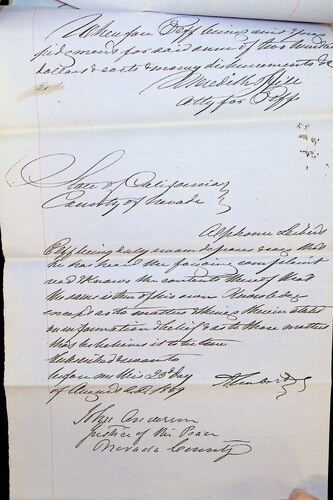 Wherefore Plff being asks judg
for said sum of two hund
dollars & costs & disbursements &c
Meredith
Atty for Plff
State of California
County of Nevada
Alphonse
Plff being duly sworn deposes & says that
he has heard the foregoing complaint
read & knows the contents thereof that
the same is true of his own knowledge
except as to matters therein stated
on information & belief & as to those matters
that he believes it to be true
Subscribed & sworn to
before me this 23d day
of August A.D. 1867
John Anderson
Justice of the Peace
Nevada County